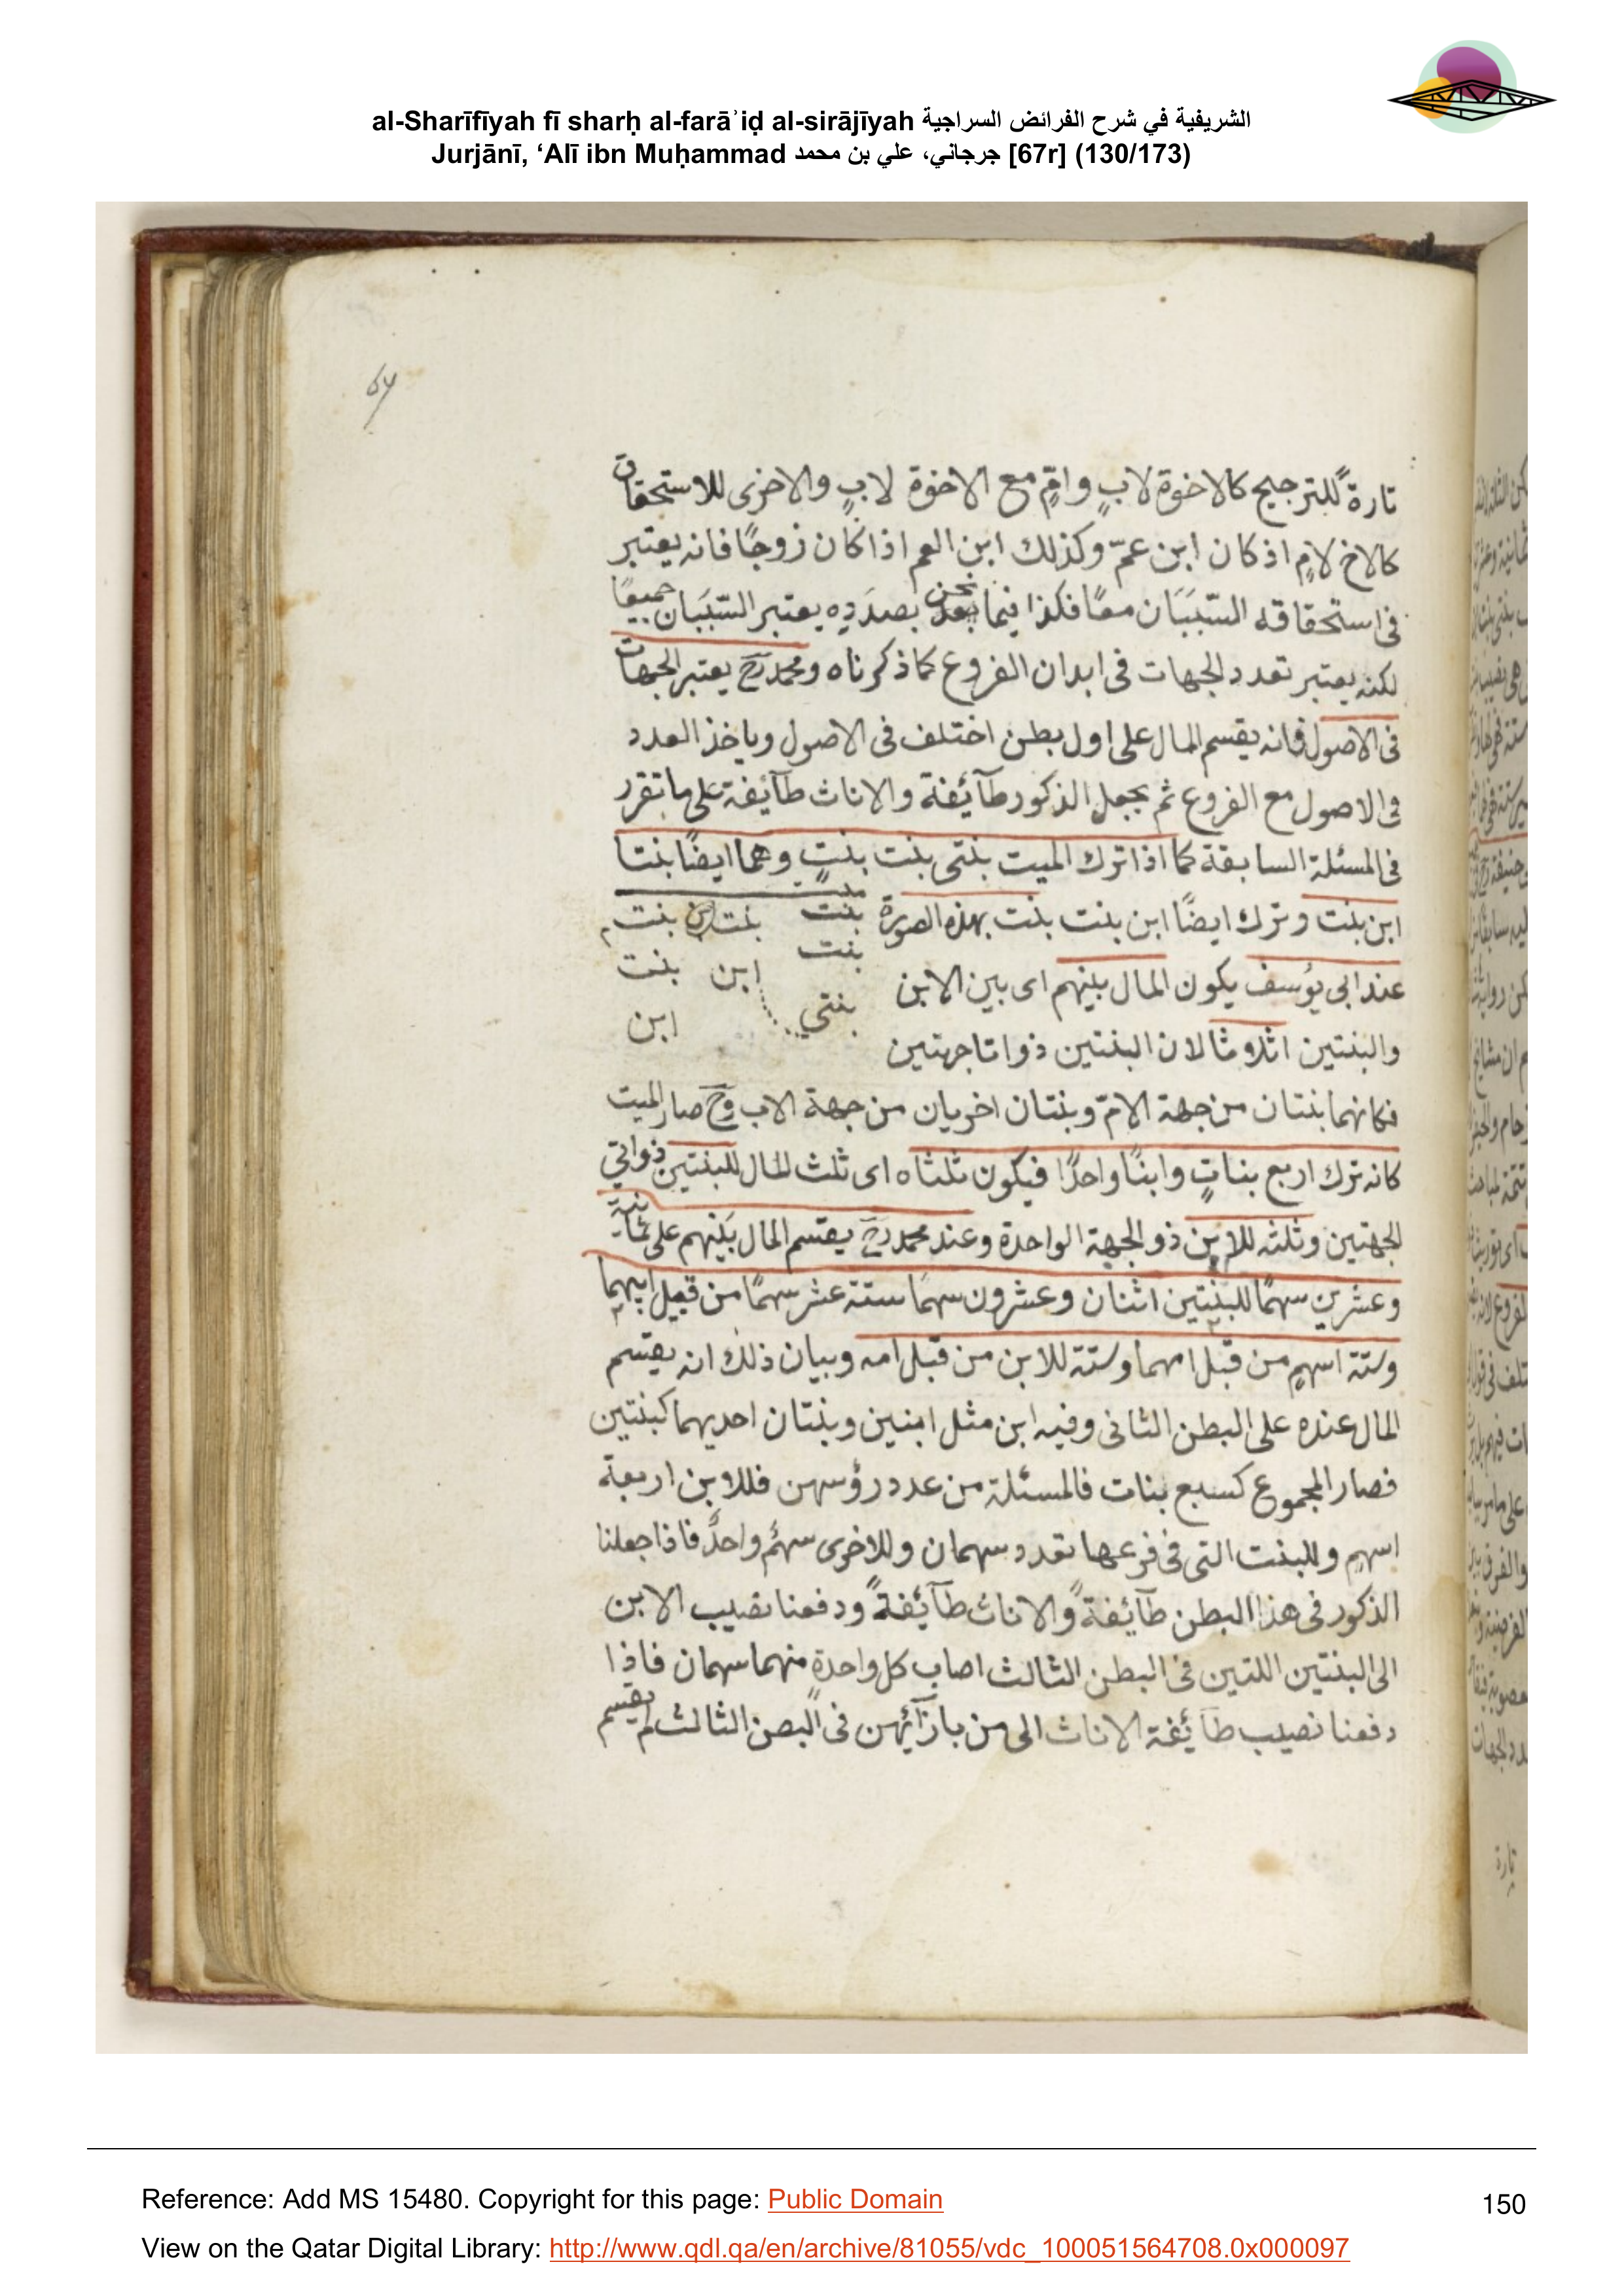 al-Sharīfīyah fī sharḥ al-farāʾiḍ al-sirājīyah الشريفية في شرح الفرائض السراجية
Jurjānī, ‘Alī ibn Muḥammad جرجاني، علي بن محمد [67r] (130/173)
67
تارةً للترجيح كالاخوة لابٍ وامٍّ مع الاخوة لابٍ والاخرى للاستحقاق
كالاخ لامٍ اذ كان ابن عمّ وكذلك ابن العم اذا كان زوجًا فانه يعتبر
فى استحقاقه السّبَبَان معًا فكذا فيما نحن بصدَدِه يعتبر السّبَبَان جميعًا
لكنه يعتبر تعدد الجهات فى ابدان الفروع كما ذكرناه ومحمد رح يعتبر الجهات
فى الاصول فانه يقسم المال على اول بطن اختلف فى الاصول وياخذ العدد
فى الاصول مع الفروع ثم يجعل الذكور طآئفة والاناث طآئفة على ما تقرر
فى المسئلة السابقة كما اذا ترك الميت بنتى بنت بنتٍ وهما ايضًا بنتا
ابن بنت وترك ايضًا ابن بنت بنت بهذه الصورة
بنت بنت بنت
بنت ابن بنت
بنتي ابن
عند ابى يوُسف يكون المال بينهم اى بين الابن
والبنتين اثلاثا لان البنتين ذواتا جهتين
فكانهما بنتان من جهة الامّ وبنتان اخريان من جهة الاب وح صار الميت
كانه ترك اربع بناتٍ وابنًا واحدًا فيكون ثلثاه اى ثلث المال للبنتين ذواتي
الجهتين وثلثه للابن ذو الجهة الواحدة وعند محمد رح يقسم المال بَيْنهم على ثمانية
وعشرين سهمًا للبنتين اثنان وعشرون سهمًا ستة عشر سهمًا من قبل ابيهما
وستة اسهمٍ من قبل امهما وستة للابن من قبل امه وبيان ذلك انه يقسم
المال عنده على البطن الثانى وفيه ابن مثل ابنين وبنتان احديهما كبنتين
فصار المجموع كسبع بنات فالمسئلة من عدد رؤسهن فللابن اربعة
اسهم وللبنت التى فى فرعها تعدد سهمان وللاخرى سهمٌ واحدٌ فاذا جعلنا
الذكور فى هذا البطن طآئفةً والاناث طآئفةً ودفعنا نصيب الابن
الى البنتين اللتين فى البطن الثالث اصاب كل واحدةٍ منهما سهمان فاذا
دفعنا نصيب طآئفة الاناث الى من بازآئهن فى البصن الثالث لم يقسم
تارة
Reference: Add MS 15480. Copyright for this page: Public Domain
150
View on the Qatar Digital Library: http://www.qdl.qa/en/archive/81055/vdc_100051564708.0x000097